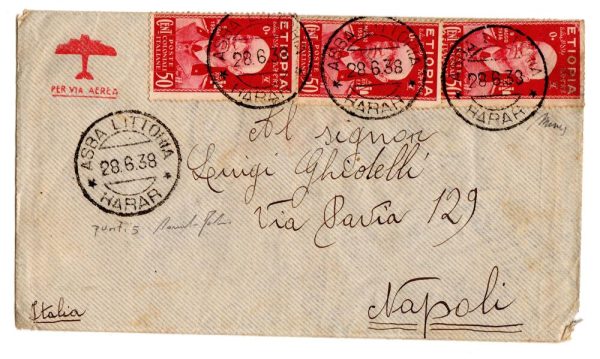 PER VIA AEREA
CENT. 50 POSTE COLONIALI ITALIANE ETIOPIA
CENT. 50 POSTE COLONIALI ITALIANE ETIOPIA
CENT. 50 ETIOPIA
ASBA LITTORIA
28.6
HARAR
ASBA LITTORIA
28.6.38
HARAR
ASBA LITTORIA
28.6.38
HARAR
ASBA LITTORIA
28.6.38
HARAR
Al signor
Luigi Ghidelli
Via Pavia 129
punti 5
Italia
Napoli